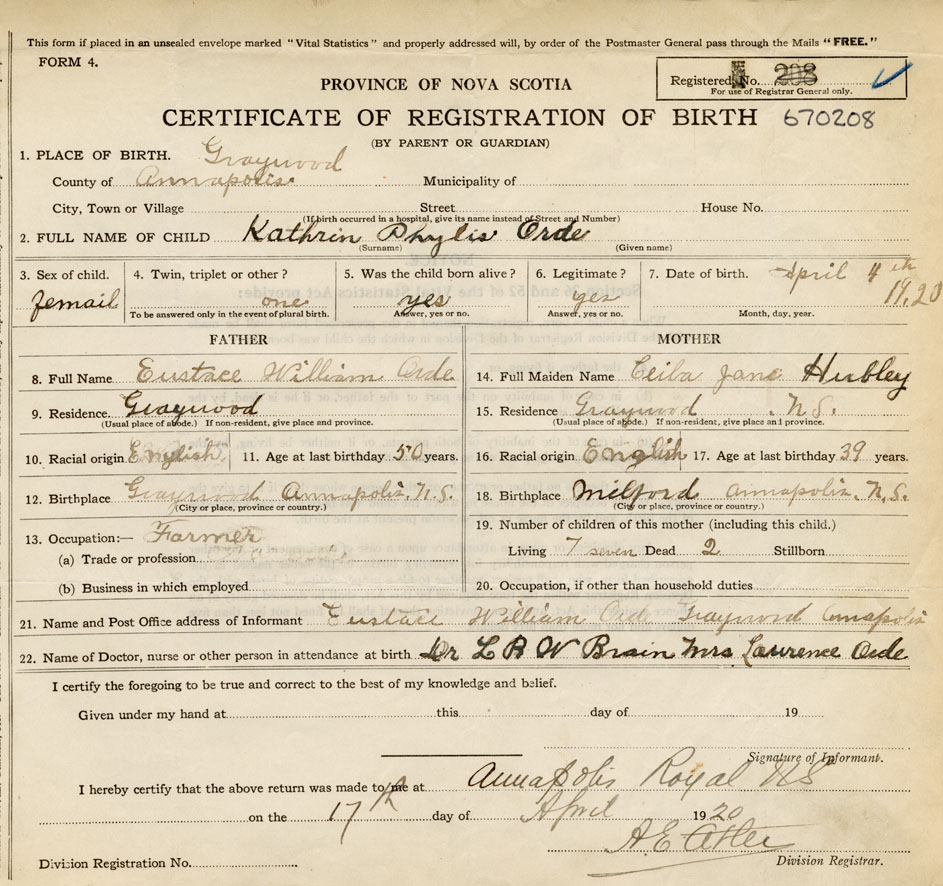 This form if placed in an unsealed envelope marked "Vital Statistics" and properly addressed will, by order of the Postmaster General pass through the Mails "FREE."
FORM 4.
Registered No. 208
For use of Registrar General only.
PROVINCE OF NOVA SCOTIA
CERTIFICATE OF REGISTRATION OF BIRTH 670208
(BY PARENT OR GUARDIAN)
1. PLACE OF BIRTH. Graywood
County of Annapolis Municipality of
City, Town or Village Street House No.
(If birth occurred in a hospital, give its name instead of Street and Number)
2. FULL NAME OF CHILD Kathrin Phylis Orde
(Surname) (Given name)
3. Sex of child. 4. Twin, triplet or other? 5. Was the child born alive? 6. Legitimate? 7. Date of birth. April 4th
femail one yes yes 1920
To be answered only in the event of plural birth. Answer, yes or no. Answer, yes or no. Month, day, year.
FATHER MOTHER
8. Full Name Eustace William Orde 14. Full Maiden Name Jane Hubley
9. Residence. Graywood 15. Residence Graywood N.S.
(Usual place of abode.) If non-resident, give place and province. (Usual place of abode.) If non-resident, give place and province.
10. Racial origin English 11. Age at last birthday 50 years. 16. Racial origin English 17. Age at last birthday 39 years.
12. Birthplace Graywood Annapolis. N.S. 18. Birthplace Milford annapolis. N.S.
(City or place, province or country.) (City or place, province or country.)
13. Occupation:— Farmer 19. Number of children of this mother (including this child.)
(a) Trade or profession Living 7 seven Dead 2 Stillborn
(b) Business in which employed 20. Occupation, if other than household duties
21. Name and Post Office address of Informant Eustace William Orde Graywood Annapolis
22. Name of Doctor, nurse or other person in attendance at birth Dr L B W Brain Mrs Lawrence Orde
I certify the foregoing to be true and correct to the best of my knowledge and belief.
Given under my hand at this day of 19
Signature of Informant.
I hereby certify that the above return was made to me at Annapolis Royal NS
on the 17th day of April 1920
A E
Division Registration No. Division Registrar.